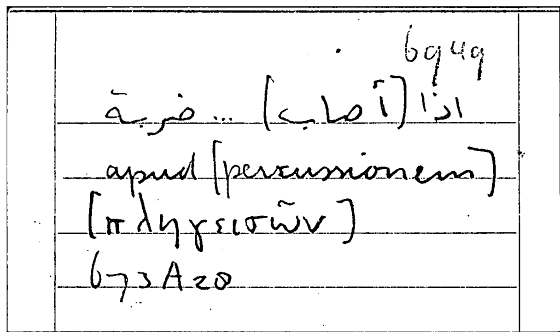 6949
اذا (أصاب) ... ضربة
apud [percussionem]
[πληγεισῶν]
673A20